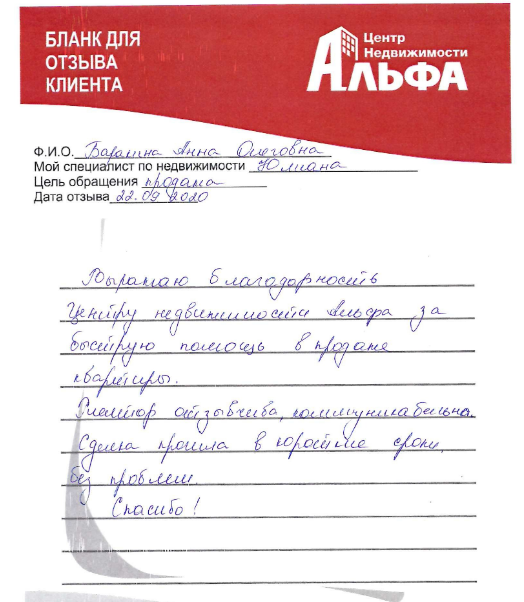 БЛАНК ДЛЯ
ОТЗЫВА
КЛИЕНТА
Центр
Недвижимости
АЛЬФА
Ф.И.О. Анна Олеговна
Мой специалист по недвижимости Юлиана
Цель обращения продажа
Дата отзыва 22.09 2020
Выражаю благодарность
Центру недвижимости Альфа за
быструю помощь в продаже
квартиры.
Риелтор отзывчива, коммуникабельна.
Сделка прошла в короткие сроки,
без проблем.
Спасибо!